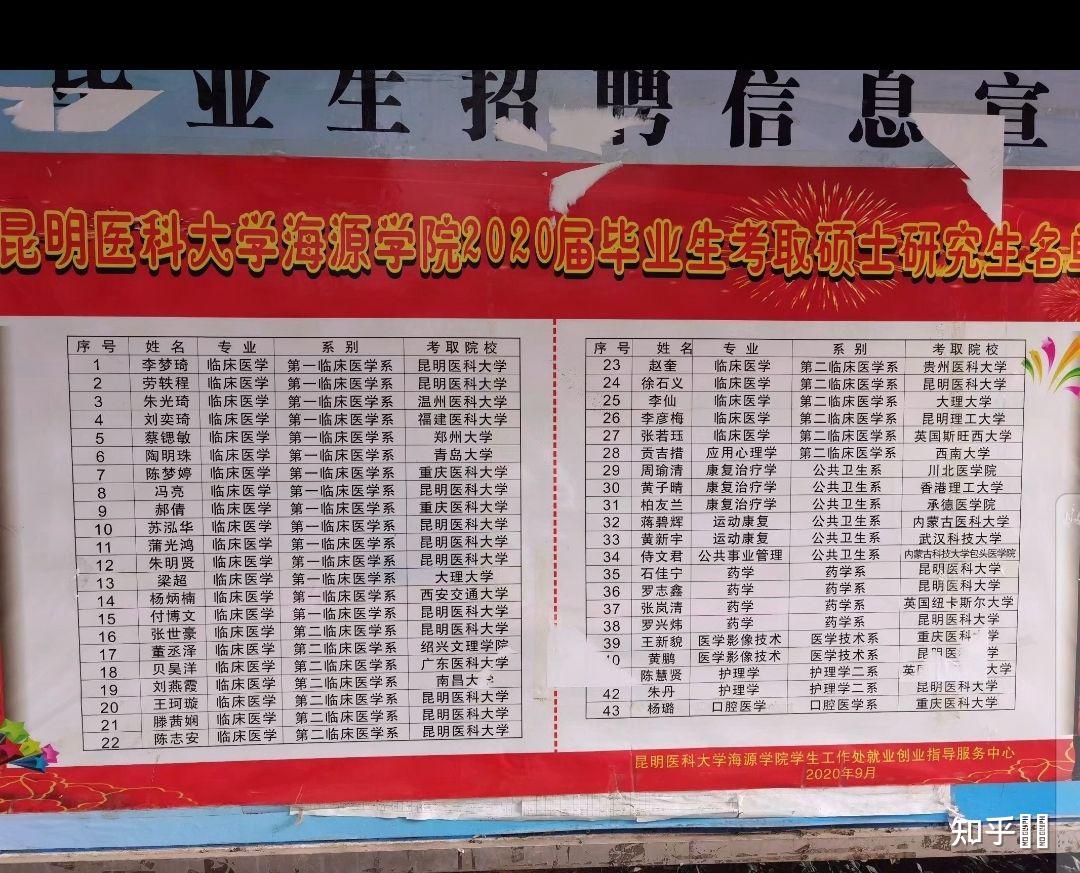 毕业生招聘信息宣
昆明医科大学海源学院2020届毕业生考取硕士研究生名单
序号 姓名 专业 系别 考取院校
1 李梦琦 临床医学 第一临床医学系 昆明医科大学
2 劳轶程 临床医学 第一临床医学系 昆明医科大学
3 朱光琦 临床医学 第一临床医学系 温州医科大学
4 刘奕琦 临床医学 第一临床医学系 福建医科大学
5 蔡锶敏 临床医学 第一临床医学系 郑州大学
6 陶明珠 临床医学 第一临床医学系 青岛大学
7 陈梦婷 临床医学 第一临床医学系 重庆医科大学
8 冯亮 临床医学 第一临床医学系 昆明医科大学
9 郝倩 临床医学 第一临床医学系 重庆医科大学
10 苏泓华 临床医学 第一临床医学系 昆明医科大学
11 蒲光鸿 临床医学 第一临床医学系 昆明医科大学
12 朱明贤 临床医学 第一临床医学系 昆明医科大学
13 梁超 临床医学 第一临床医学系 大理大学
14 杨炳楠 临床医学 第一临床医学系 西安交通大学
15 付博文 临床医学 第一临床医学系 昆明医科大学
16 张世豪 临床医学 第二临床医学系 昆明医科大学
17 董丞泽 临床医学 第二临床医学系 绍兴文理学院
18 贝昊洋 临床医学 第二临床医学系 广东医科大学
19 刘燕霞 临床医学 第二临床医学系 南昌大
20 王珂璇 临床医学 第二临床医学系 昆明医科大学
21 滕茜娴 临床医学 第二临床医学系 昆明医科大学
22 陈志安 临床医学 第二临床医学系 昆明医科大学
序号 姓名 专业 系别 考取院校
23 赵奎 临床医学 第二临床医学系 贵州医科大学
24 徐石义 临床医学 第二临床医学系 昆明医科大学
25 李仙 临床医学 第二临床医学系 大理大学
26 李彦梅 临床医学 第二临床医学系 昆明理工大学
27 张若珏 临床医学 第二临床医学系 英国斯旺西大学
28 贡吉措 应用心理学 第二临床医学系 西南大学
29 周瑜清 康复治疗学 公共卫生系 川北医学院
30 黄子晴 康复治疗学 公共卫生系 香港理工大学
31 柏友兰 康复治疗学 公共卫生系 承德医学院
32 蒋碧辉 运动康复 公共卫生系 内蒙古医科大学
33 黄新宇 运动康复 公共卫生系 武汉科技大学
34 侍文君 公共事业管理 公共卫生系 内蒙古科技大学包头医学院
35 石佳宁 药学 药学系 昆明医科大学
36 罗志鑫 药学 药学系 昆明医科大学
37 张岚清 药学 药学系 英国纽卡斯尔大学
38 罗兴炜 药学 药学系 昆明医科大学
39 王新貌 医学影像技术 医学技术系 重庆医科大学
黄鹏 医学影像技术 医学技术系 昆明医 大学
陈慧贤 护理学 护理学二系 英 大学
42 朱丹 护理学 护理学二系 昆明医科大学
43 杨璐 口腔医学 口腔医学系 重庆医科大学
昆明医科大学海源学院学生工作处就业创业指导服务中心
2020年9月
知乎